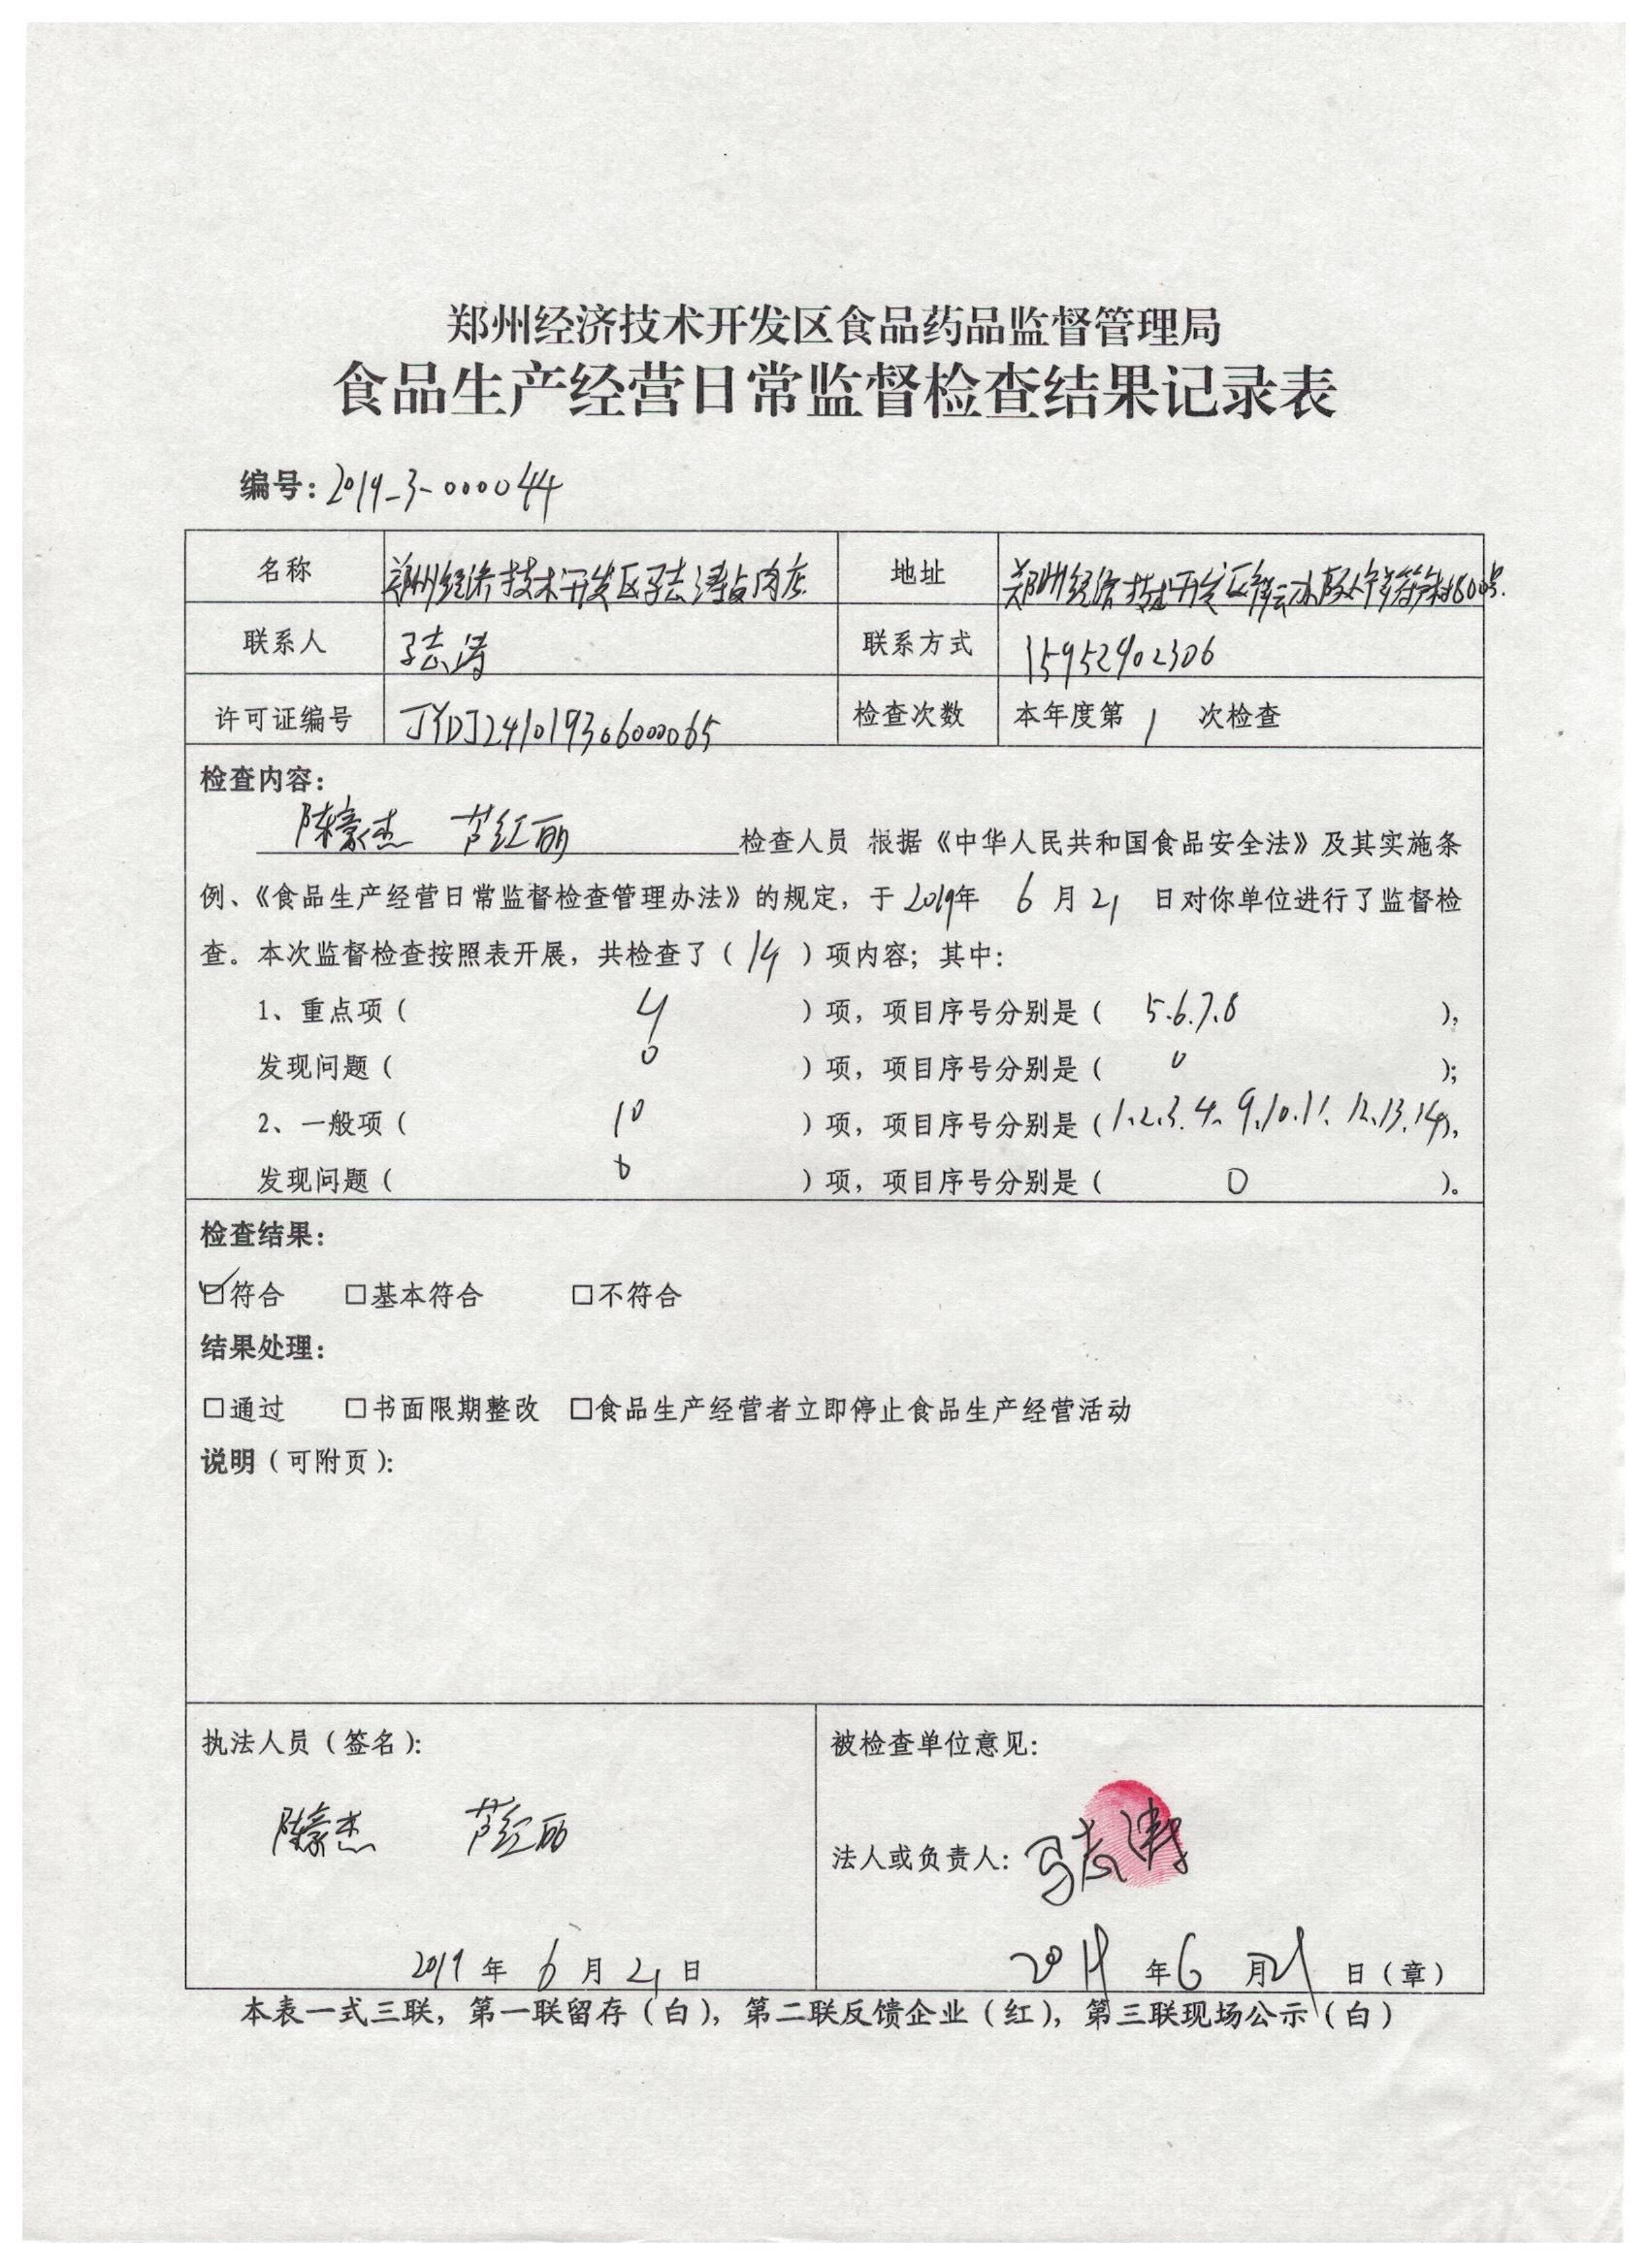 郑州经济技术开发区食品药品监督管理局
食品生产经营日常监督检查结果记录表
编号：2019-3-000044
名称 郑州经济技术开发区 志涛 肉店 地址 郑州经济技术开发区 办 村 600号.
联系人 志涛 联系方式 15952902306
许可证编号 JYDJ241019306000065 检查次数 本年度第 1 次检查
检查内容：
陈豪杰 芦红丽 检查人员 根据《中华人民共和国食品安全法》及其实施条
例、《食品生产经营日常监督检查管理办法》的规定，于 2019年 6 月 21 日对你单位进行了监督检
查。本次监督检查按照表开展，共检查了（ 14 ）项内容；其中：
1、重点项（ 4 ）项，项目序号分别是（ 5.6.7.8 ），
发现问题（ 0 ）项，项目序号分别是（ 0 ）；
2、一般项（ 10 ）项，项目序号分别是（1.2.3.4.9.10.11.12.13.14），
发现问题（ 0 ）项，项目序号分别是（ 0 ）。
检查结果：
☑符合 □基本符合 □不符合
结果处理：
□通过 □书面限期整改 □食品生产经营者立即停止食品生产经营活动
说明（可附页）：
执法人员（签名）： 被检查单位意见：
陈豪杰 芦红丽
法人或负责人： 志涛
2019 年 6 月 21 日 2019 年 6 月 21 日（章）
本表一式三联，第一联留存（白），第二联反馈企业（红），第三联现场公示（白）